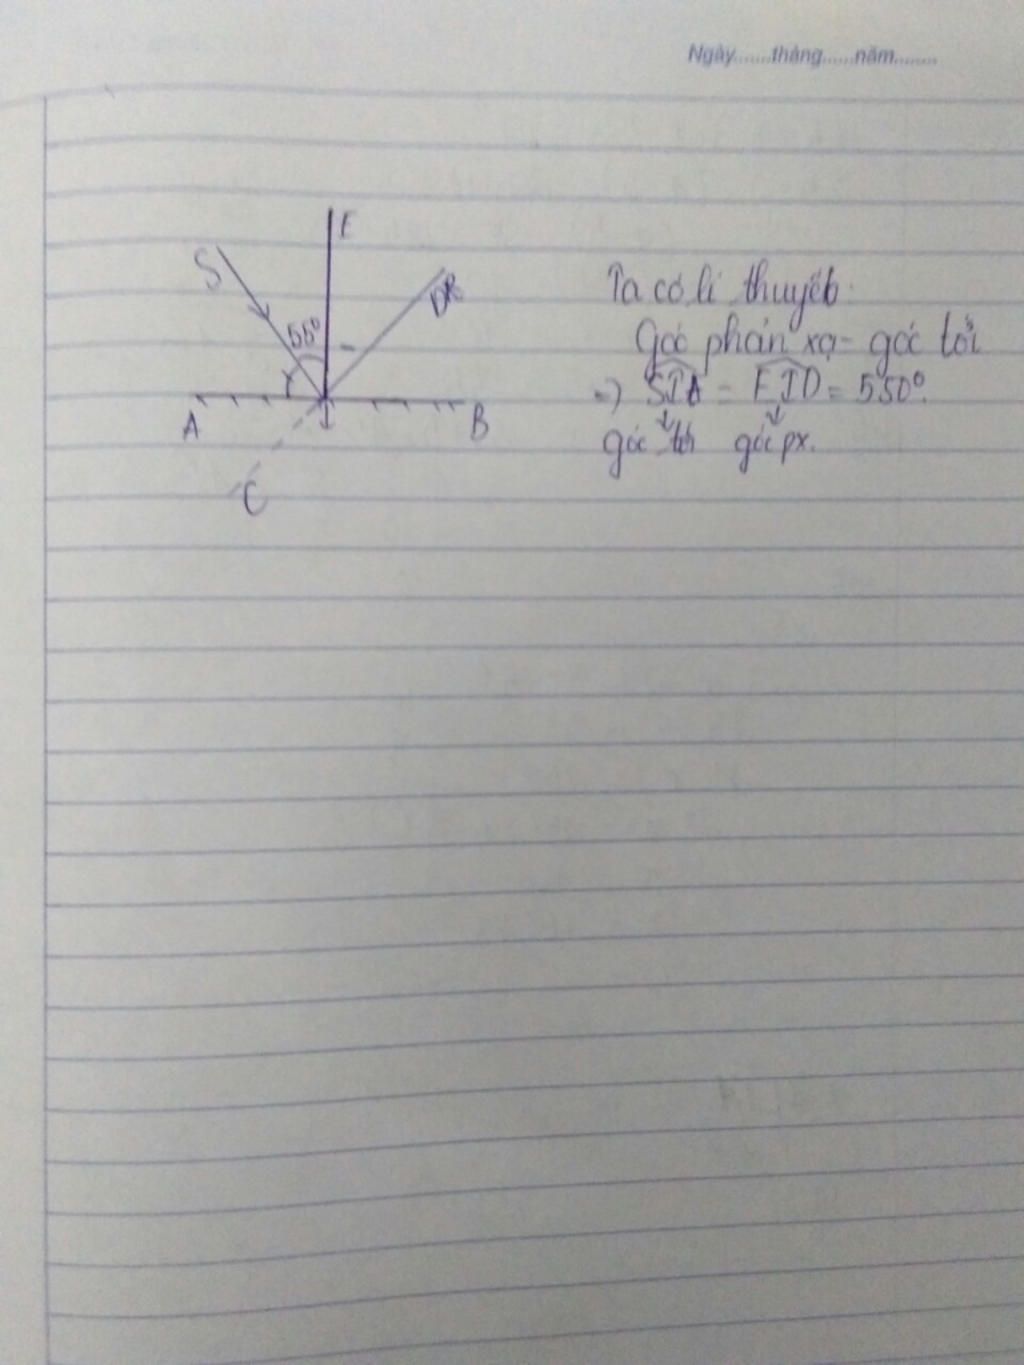 Ngày.......tháng......năm........
E
S
DR
55°
I
A
B
C
Ta có lí thuyết
Góc phản xạ = góc tới
=) SIA = EID = 550°.
góc tới góc px.